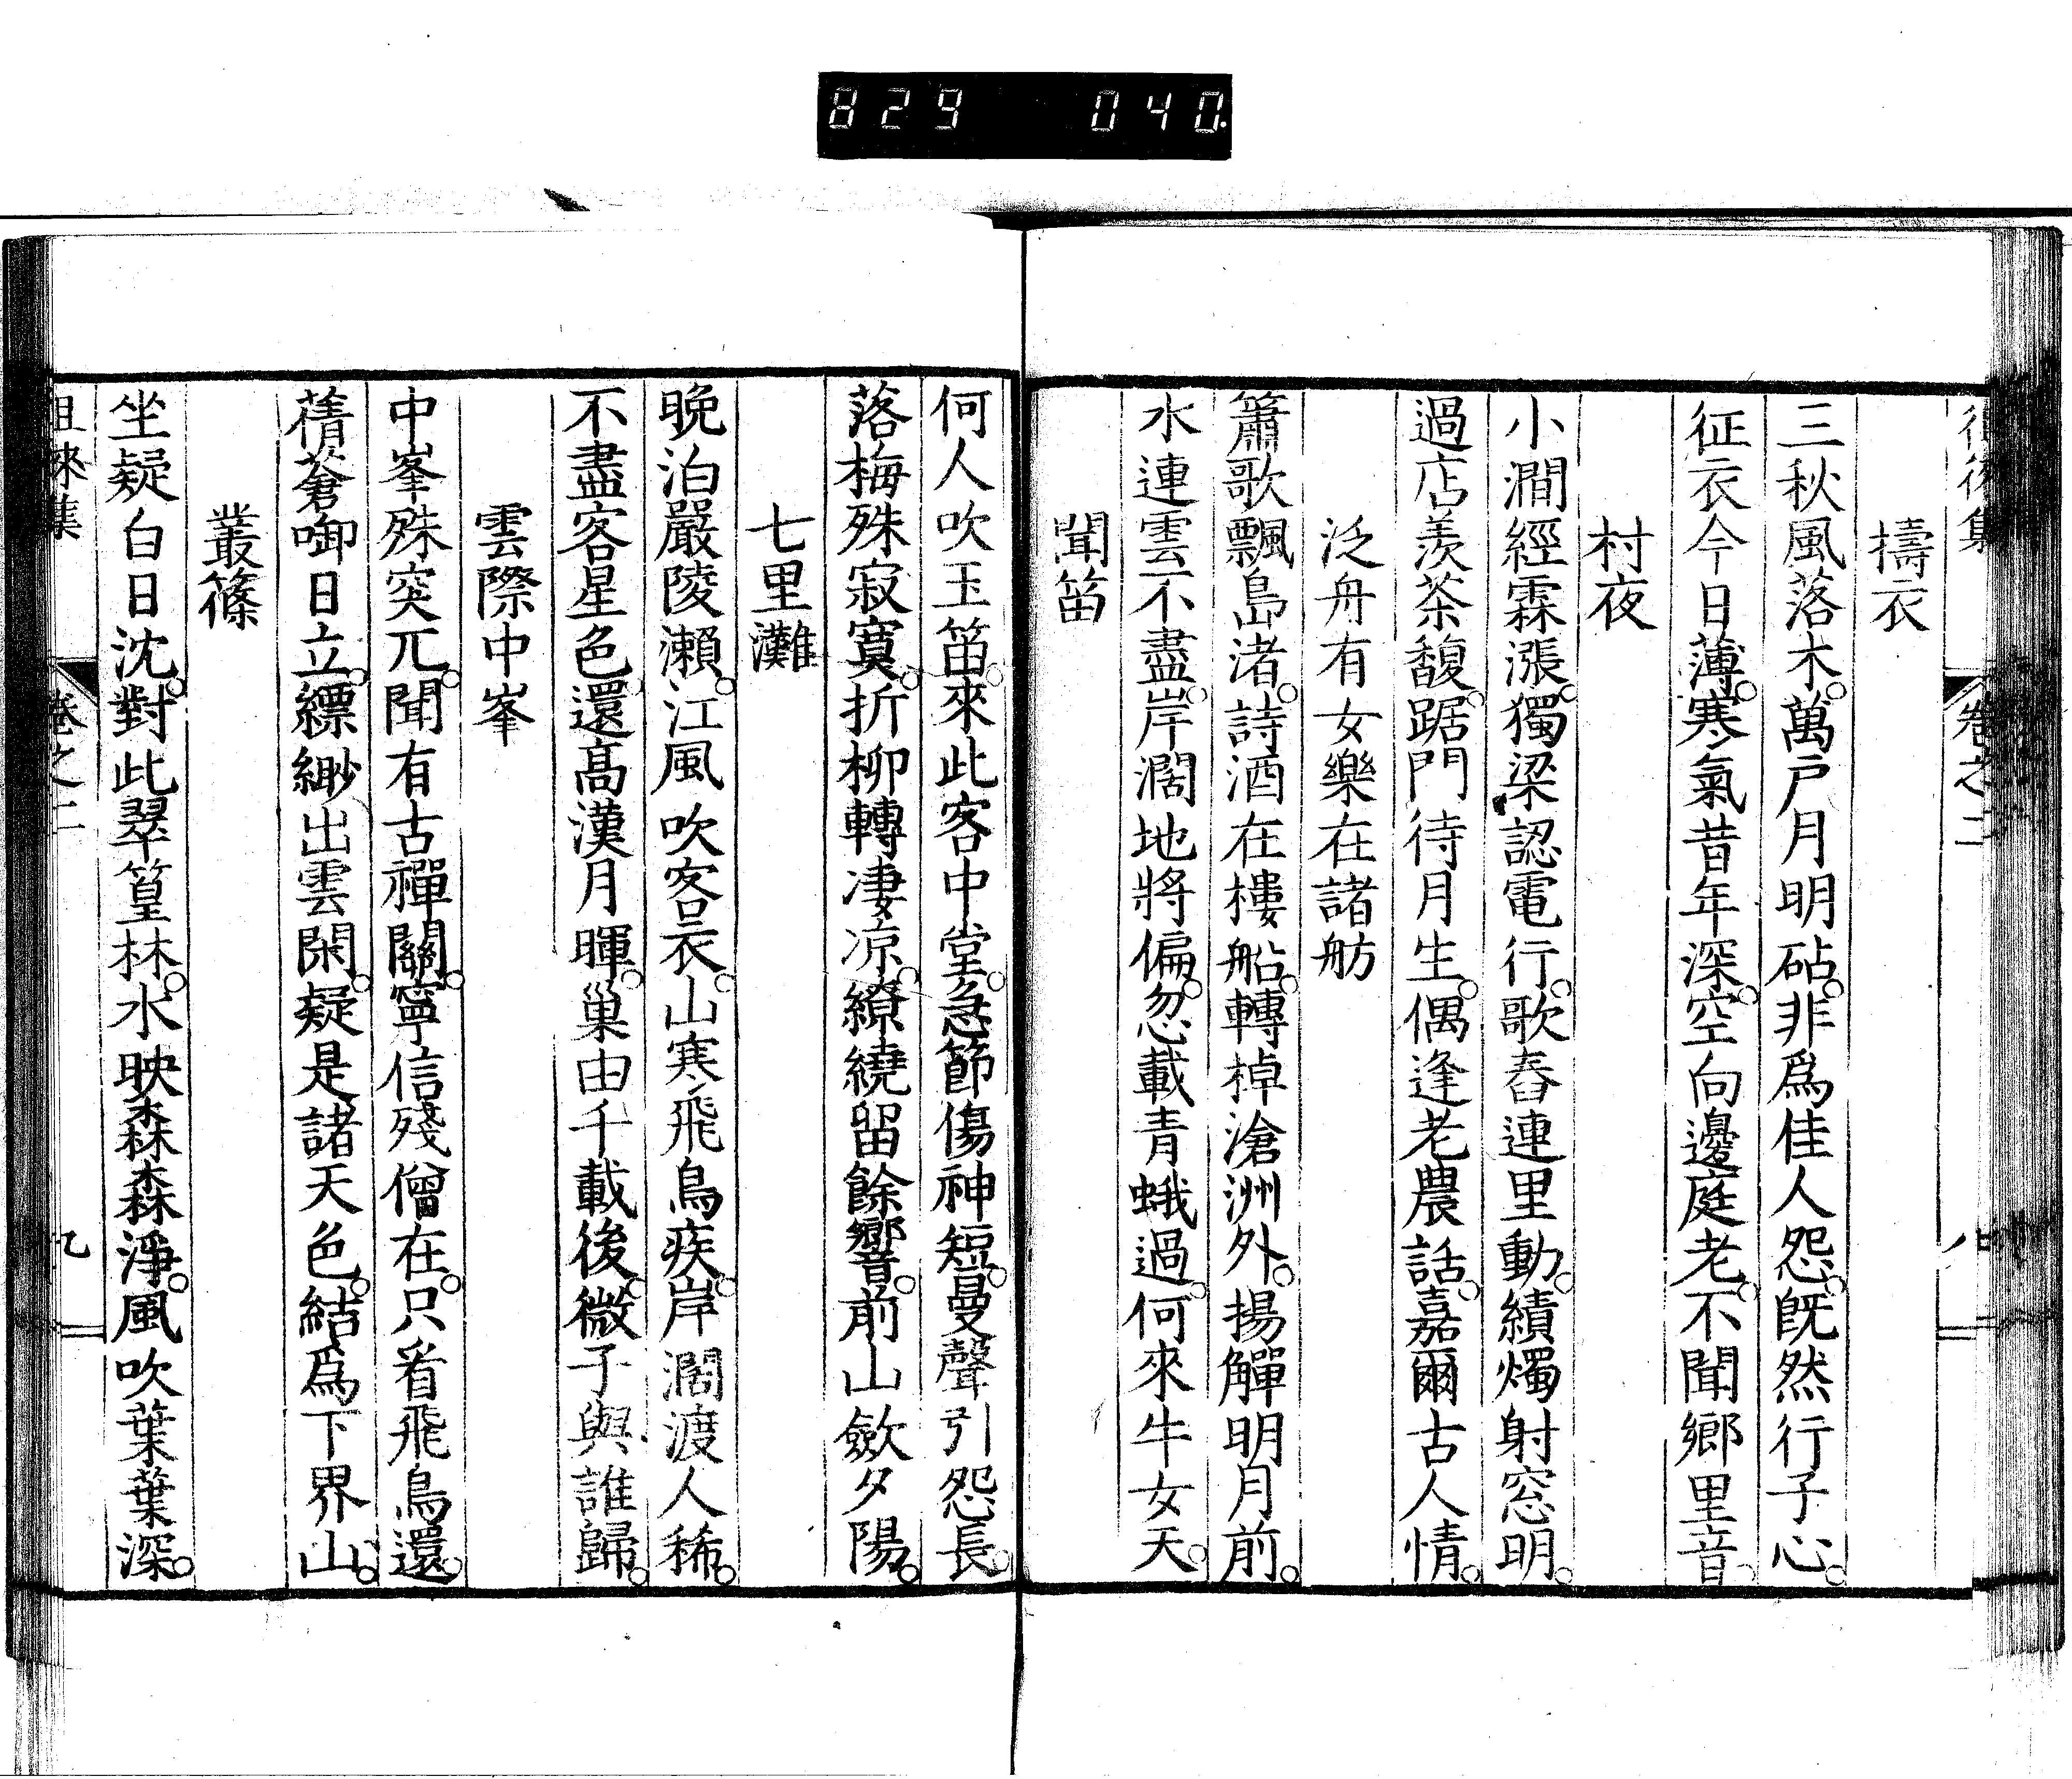 829 040.
擣衣
三秋風落木。萬戸月明砧。非爲佳人怨。旣然行子心。
征衣今日薄。寒氣昔年深。空向邊庭老。不聞鄉里音。
村夜
小澗經霖漲。獨梁認電行。歌舂連里動。績燭射窓明。
過店羨茶馥。踞門待月生。偶逢老農話。嘉爾古人情。
泛舟有女樂在諸舫
簫歌飄島渚。詩酒在樓船。轉棹滄洲外。揚觶明月前。
水連雲不盡。岸濶地將偏。忽載青蛾過。何來牛女天。
聞笛
何人吹玉笛。來此客中堂。急節傷神短。曼聲引怨長。
落梅殊寂寞。折柳轉凄凉。繚繞留餘響。前山斂夕陽。
七里灘
晚泊嚴陵瀨。江風吹客衣。山寒飛鳥疾。岸濶渡人稀。
不盡客星色。還高漢月暉。巢由千載後。微子與誰歸。
雲際中峯
中峯殊突兀。聞有古禪關。寧信殘僧在。只看飛鳥還。
蒨蒼啣日立。縹緲出雲閑。疑是諸天色。結爲下界山。
叢篠
坐疑白日沈。對此翠篁林。水映森森淨。風吹葉葉深。
徂徠集 卷之二 九